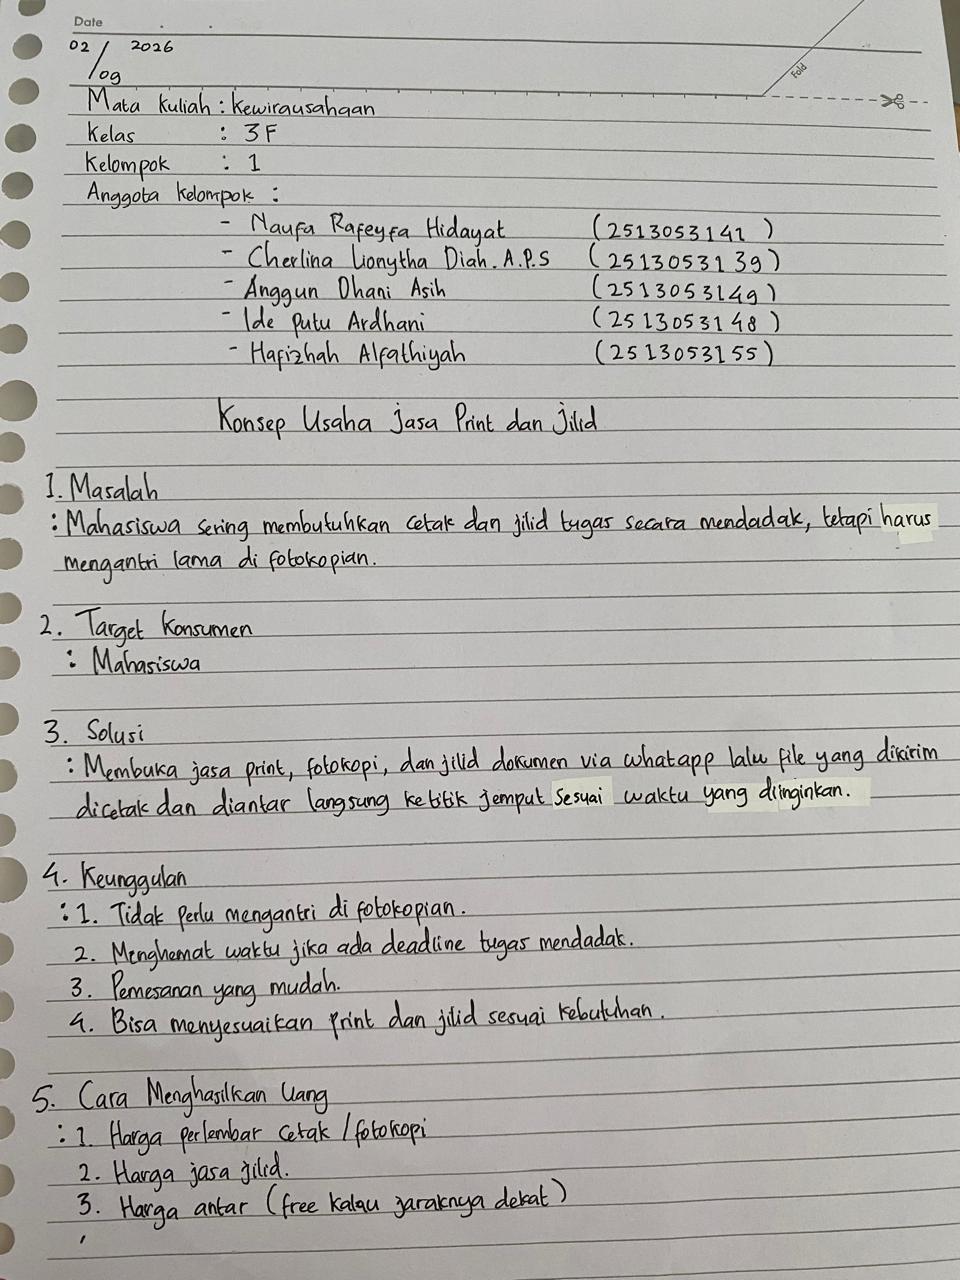 Date
02/09 2026
Fold
Mata kuliah : Kewirausahaan
Kelas : 3F
Kelompok : 1
Anggota Kelompok :
- Naufa Rafeyfa Hidayat (2513053141)
- Cherlina Lionytha Diah. A.P.S (2513053139)
- Anggun Dhani Asih (2513053149)
- Ide Putu Ardhani (2513053148)
- Hafizhah Alfathiyah (2513053155)
Konsep Usaha Jasa Print dan Jilid
1. Masalah
: Mahasiswa sering membutuhkan cetak dan jilid tugas secara mendadak, tetapi harus
mengantri lama di fotokopian.
2. Target Konsumen
: Mahasiswa
3. Solusi
: Membuka jasa print, fotokopi, dan jilid dokumen via whatapp lalu file yang dikirim
dicetak dan diantar langsung ke titik jemput sesuai waktu yang diinginkan.
4. Keunggulan
: 1. Tidak perlu mengantri di fotokopian.
2. Menghemat waktu jika ada deadline tugas mendadak.
3. Pemesanan yang mudah.
4. Bisa menyesuaikan print dan jilid sesuai kebutuhan.
5. Cara Menghasilkan Uang
: 1. Harga perlembar cetak / fotokopi
2. Harga jasa jilid.
3. Harga antar (free kalau jaraknya dekat)